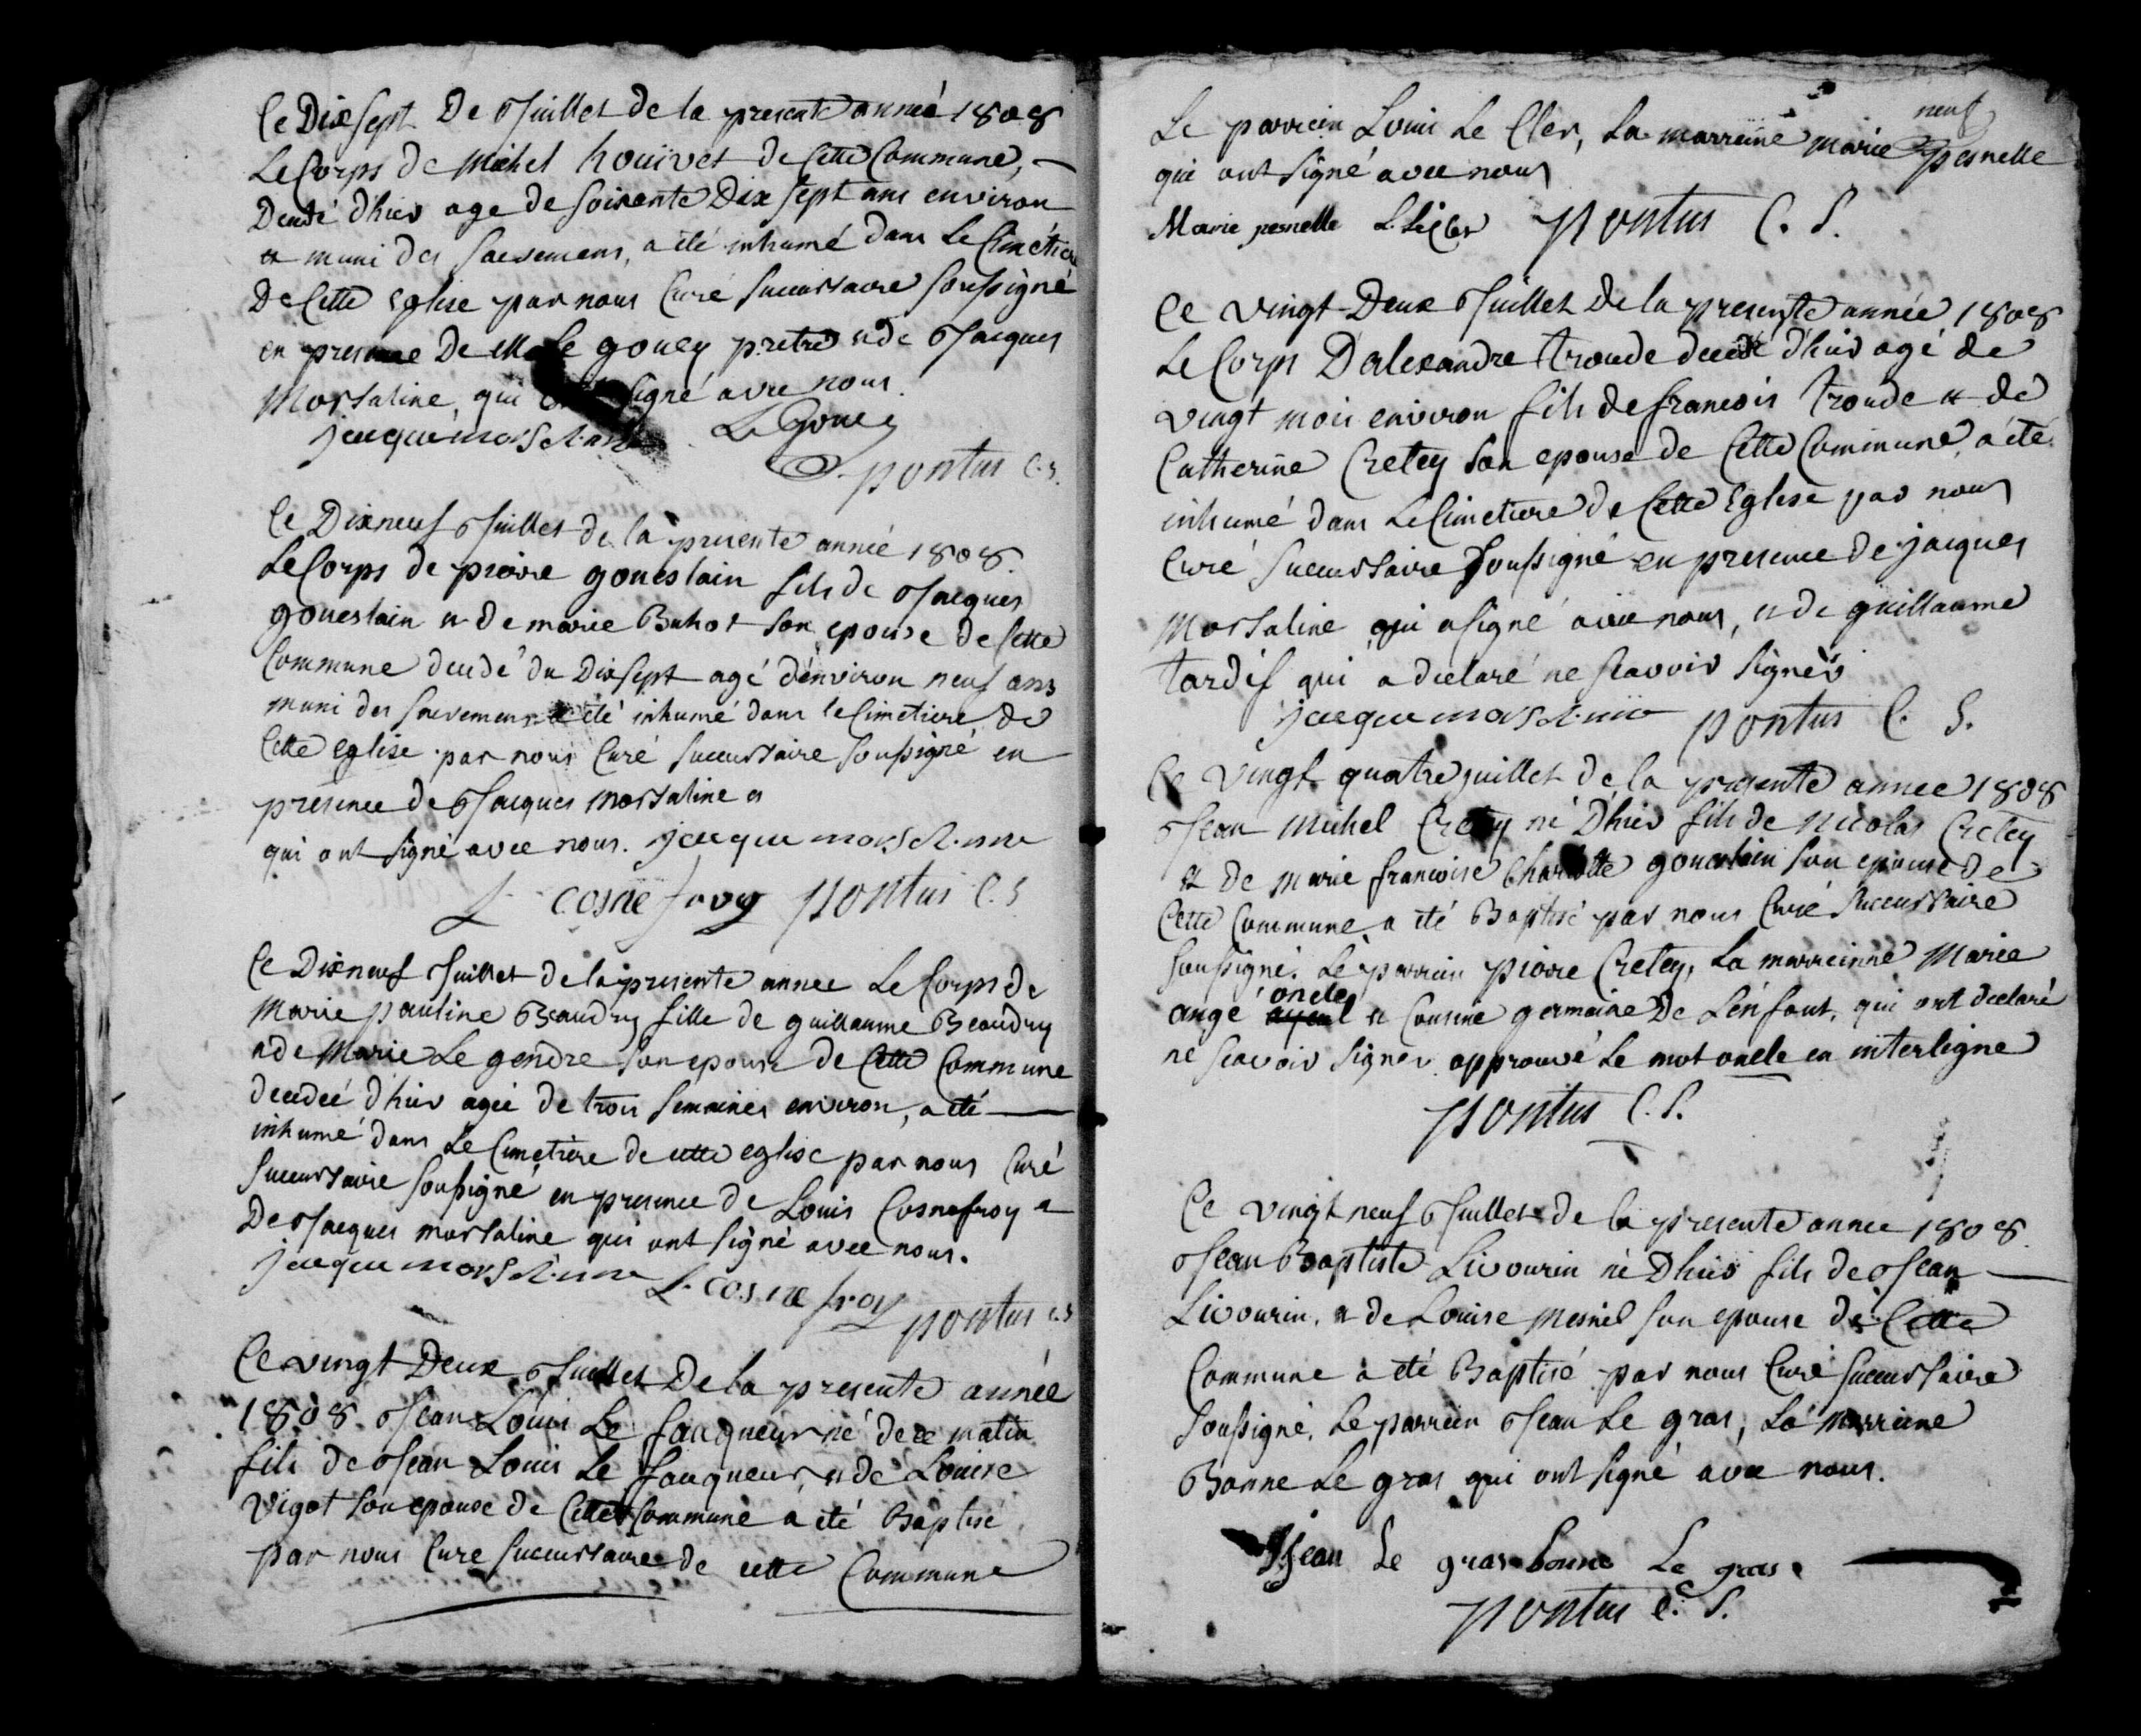 Ce Dix sept De Juillet de la presente année 1808
Le Corps de Michel houivet de Cette Commune,
Decedé d'hier age de soixante Dix sept ans environ
et muni des sacremens, a été inhumé dans Le Cimetiere
De Cette Eglise par nous Curé succursaire soussigné
en presence De M Le gouey pretre et de Jacques
Morsaline, qui ont signé avec nous.
jacque morsaline Le Gouey
pontus C.S.
Ce Dix neuf Juillet de la presente année 1808.
Le Corps de pierre gouestain fils de Jacques
gouestain et de marie Buhot son epouse de Cette
Commune decedé du Dix sept agé d'environ neuf ans
muni des sacremens a été inhumé dans le Cimetiere de
Cette Eglise par nous Curé succursaire soussigné en
presence de Jacques morsaline et
qui ont signé avec nous. jacque morsaline
L cosnefroy pontus C.S
Ce Dix neuf Juillet de la presente annee Le Corps de
Marie pauline Beaudry fille de guillaume Beaudry
et de Marie Le gendre son epouse de Cette Commune
decedeé d'hier ageé de trois semaines environ, a été
inhumé dans Le Cimetiere de cette eglise par nous Curé
succursaire soussigné en presence de Louis Cosnefroy et
De Jacques morsaline qui ont signé avec nous.
jacque morsaline L. cosnefroy pontus C.S
Ce vingt Deux Juillet De la presente année
1808. Jean Louis Le fauqueur né de ce matin
fils de Jean Louis Le fauqueur, et de Louise
Vigot son epouse de Cette Commune a été Baptisé
par nous Cure succursaire de cette Commune
neuf
Le parrein Louis Le Cler, La marreine marie pesnelle
qui ont signé avec nous
Marie pesnelle L. le Cler pontus C. S.
Ce vingt-Deux Juillet De la presente année 1808
Le Corps D'alexandre troude decedé d'hier agé de
vingt mois environ fils de francois troude et de
Catherine Cretey son epouse de Cette Commune a été
inhumé dans Le Cimetiere De Cette Eglise par nous
Curé succursaire soussigné en presence de jacques
Morsaline qui a signé avec nous, et de guillaume
tardif qui a declaré ne scavoir signer
jacque morsaline pontus C. S.
Ce vingt quatre juillet de la presente annee 1808
Jean Michel Cretey né D'hier fils de Nicolas Cretey
et de Marie francoise Charlotte gouestain son epouse de
Cette Commune a été Baptisé par nous Curé succursaire
soussigné. Le parrein pierre Cretey, La marreinne Marie
oncle
ange ayeul et Cousine germaine De L'enfant, qui ont declaré
ne scavoir signer approuvé Le mot oncle en interligne
pontus C. S.
Ce vingt neuf Juillet de la presente annee 1808.
Jean Baptiste Livourin né D'hier fils de Jean
Livourin, et de Louise Mesnil son epouse de Cette
Commune a été Baptisé par nous Curé succursaire
soussigné, Le parrein Jean Le gras, La Marreine
Bonne Le gras qui ont signé avec nous.
Jean Le gras bonne Le gras
pontus C. S.